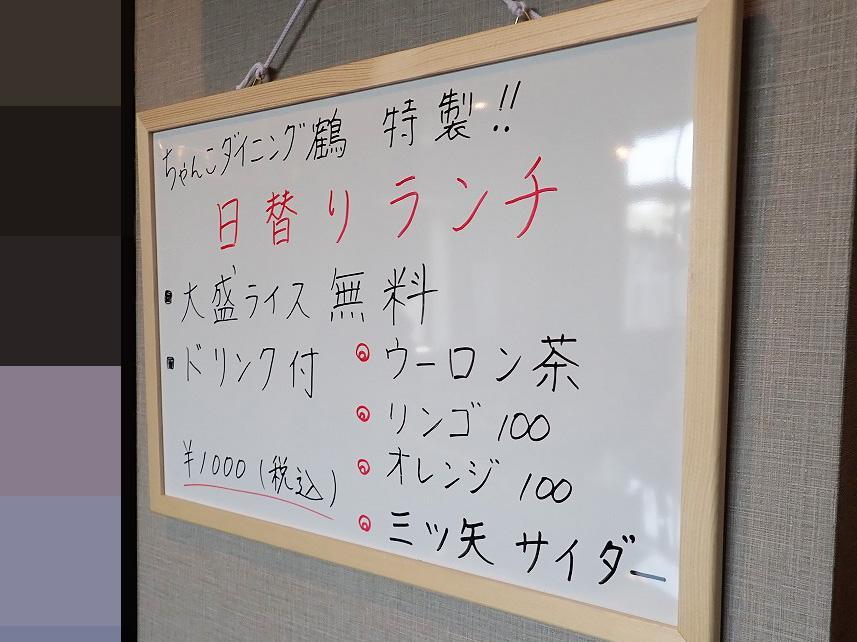 ちゃんこダイニング鶴 特製!!
日替りランチ
大盛ライス無料
ドリンク付
ウーロン茶
リンゴ100
オレンジ100
三ツ矢サイダー
¥1000(税込)